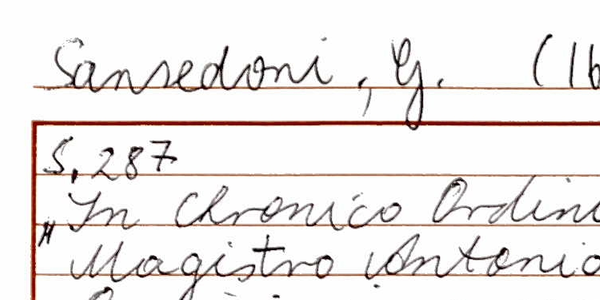 Sansedoni, G. (16
S. 287
"In Chronico Ordin
Magistro Antonio